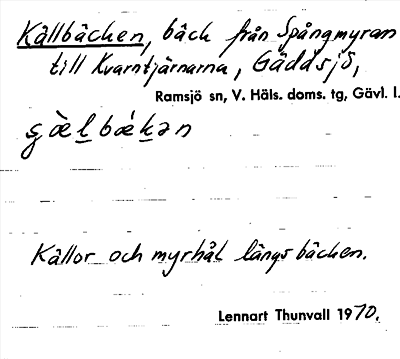 Källbäcken, bäck från Spångmyran
till Kvarntjärnarna, Gäddsjö,
Ramsjö sn, V. Häls. doms. tg, Gävl. l.
Källor och myrhål längs bäcken.
Lennart Thunvall 1970.